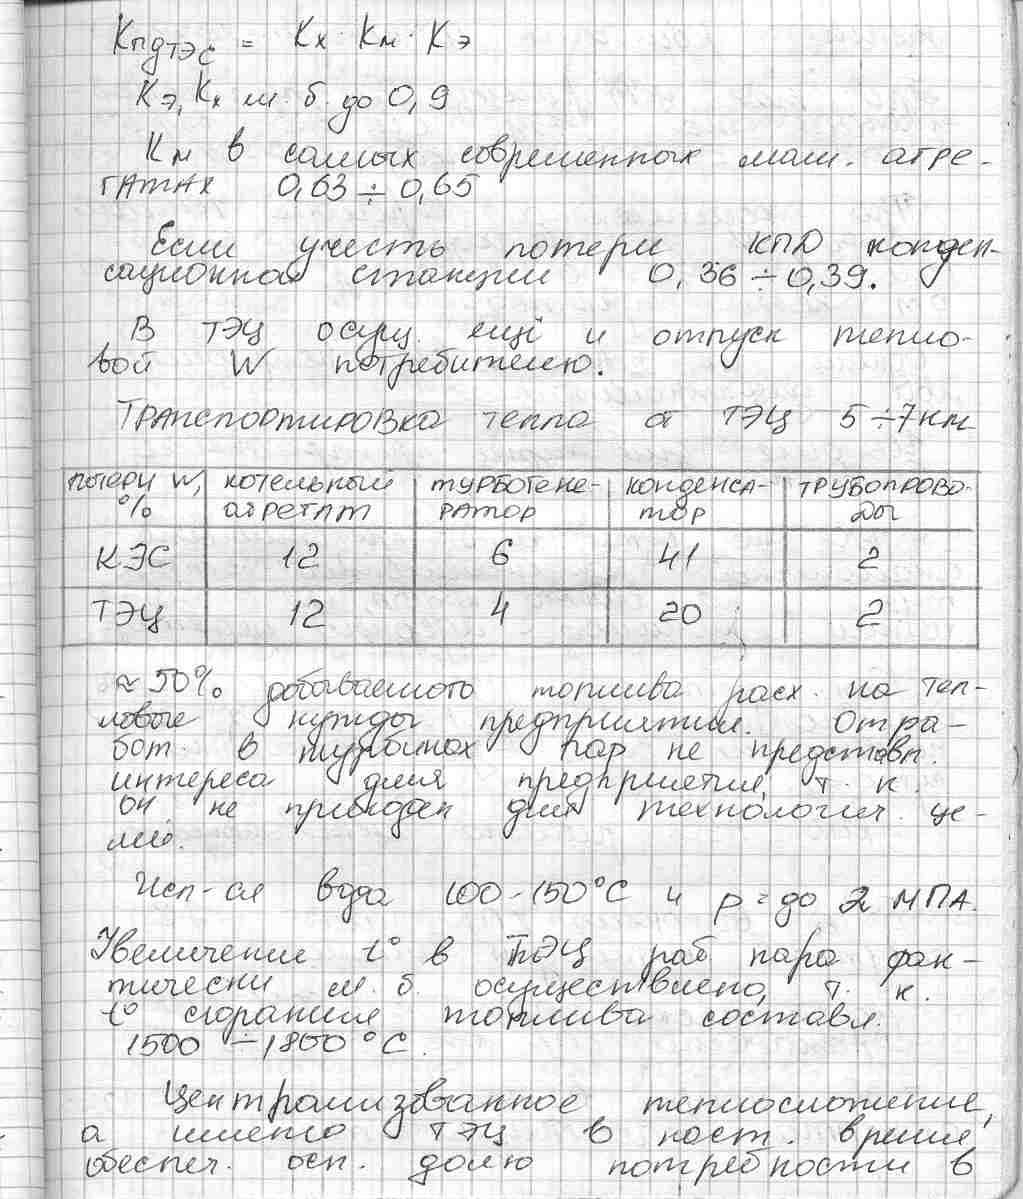 КпдТЭС = Kх · Kм · Kэ
Kэ, Kх м. б. до 0,9
Kм в самых современных маш. агре-
гатах 0,63 ÷ 0,65
Если учесть потери КПД конден-
сационная станции 0,36 ÷ 0,39.
В ТЭЦ осущ. ещё и отпуск тепло-
вой W потребителю.
Транспортировка тепла от ТЭЦ 5 ÷ 7 км
потери W, % | котельный агрегат | турбогене-ратор | конденса-тор | трубопрово-ды
КЭС | 12 | 6 | 41 | 2
ТЭЦ | 12 | 4 | 20 | 2
≈ 50% добываемого топлива расх. на теп-
ловые нужды предприятий. Отра-
бот. в турбинах пар не представл.
интереса для предприятия, т. к.
он не пригоден для технологич. це-
лей.
Исп-ся вода 100-150°С и p = до 2 МПА.
Увеличение t° в ТЭЦ раб пара фак-
тически м. б. осуществлено, т. к.
t° сгорания топлива составл.
1500 ÷ 1800 °С.
Централизованное
а именно ТЭЦ в наст. время
обеспеч. осн. долю потребности в